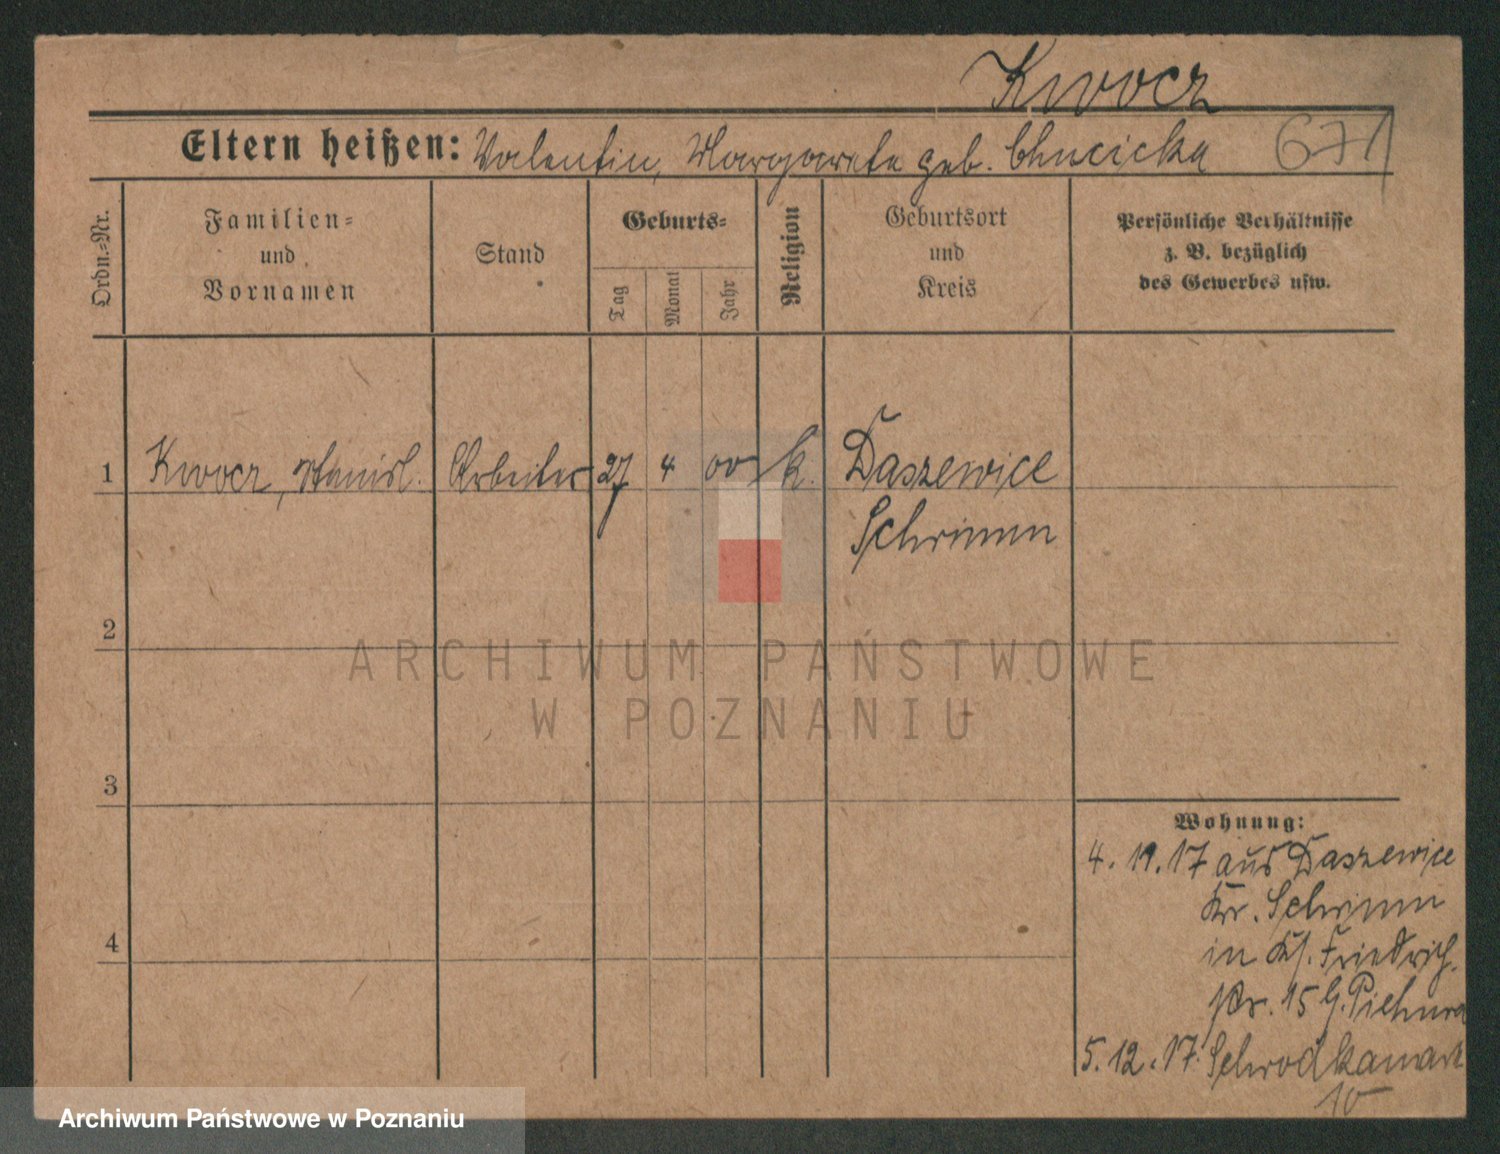 Kwocz
Eltern heißen: Valentin, Margareta geb. Chucicka 671
Ordn.-Nr.
Familien-
und
Vornamen
Stand
Geburts-
Tag
Monat
Jahr
Religion
Geburtsort
und
Kreis
Persönliche Verhältnisse
z. B. bezüglich
des Gewerbes usw.
1 Kwocz, Stanisl. Arbeiter 27 4 00 k. Daszewice
Schrimm
2
ARCHIWUM PAŃSTWOWE
W POZNANIU
3
Wohnung:
4. 17 aus Daszewice
Kr. Schrimm
4
in Kl. Friedrich
15 b. Piechura
5.12.17. Schrodkamarkt
10
Archiwum Państwowe w Poznaniu